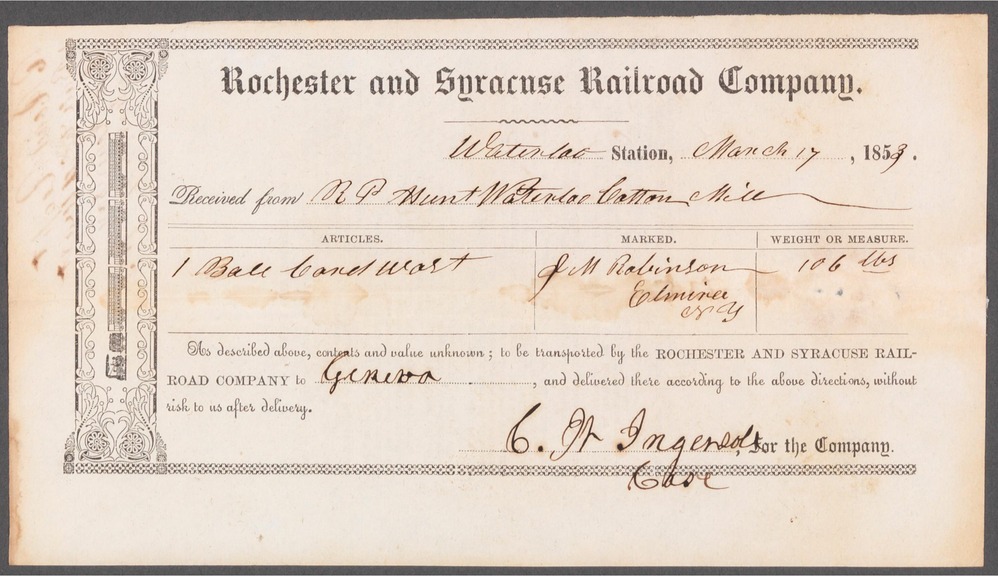 Rochester and Syracuse Railroad Company.
Waterloo Station, March 17, 1853.
Received from R P Hunt Waterloo Cotton Mill
ARTICLES. MARKED. WEIGHT OR MEASURE.
1 Bale Card Wast J M Robinson 106 lbs
Elmira
N Y
As described above, contents and value unknown; to be transported by the ROCHESTER AND SYRACUSE RAIL-
ROAD COMPANY to Geneva, and delivered there according to the above directions, without
risk to us after delivery.
C. H Ingersoll, For the Company.